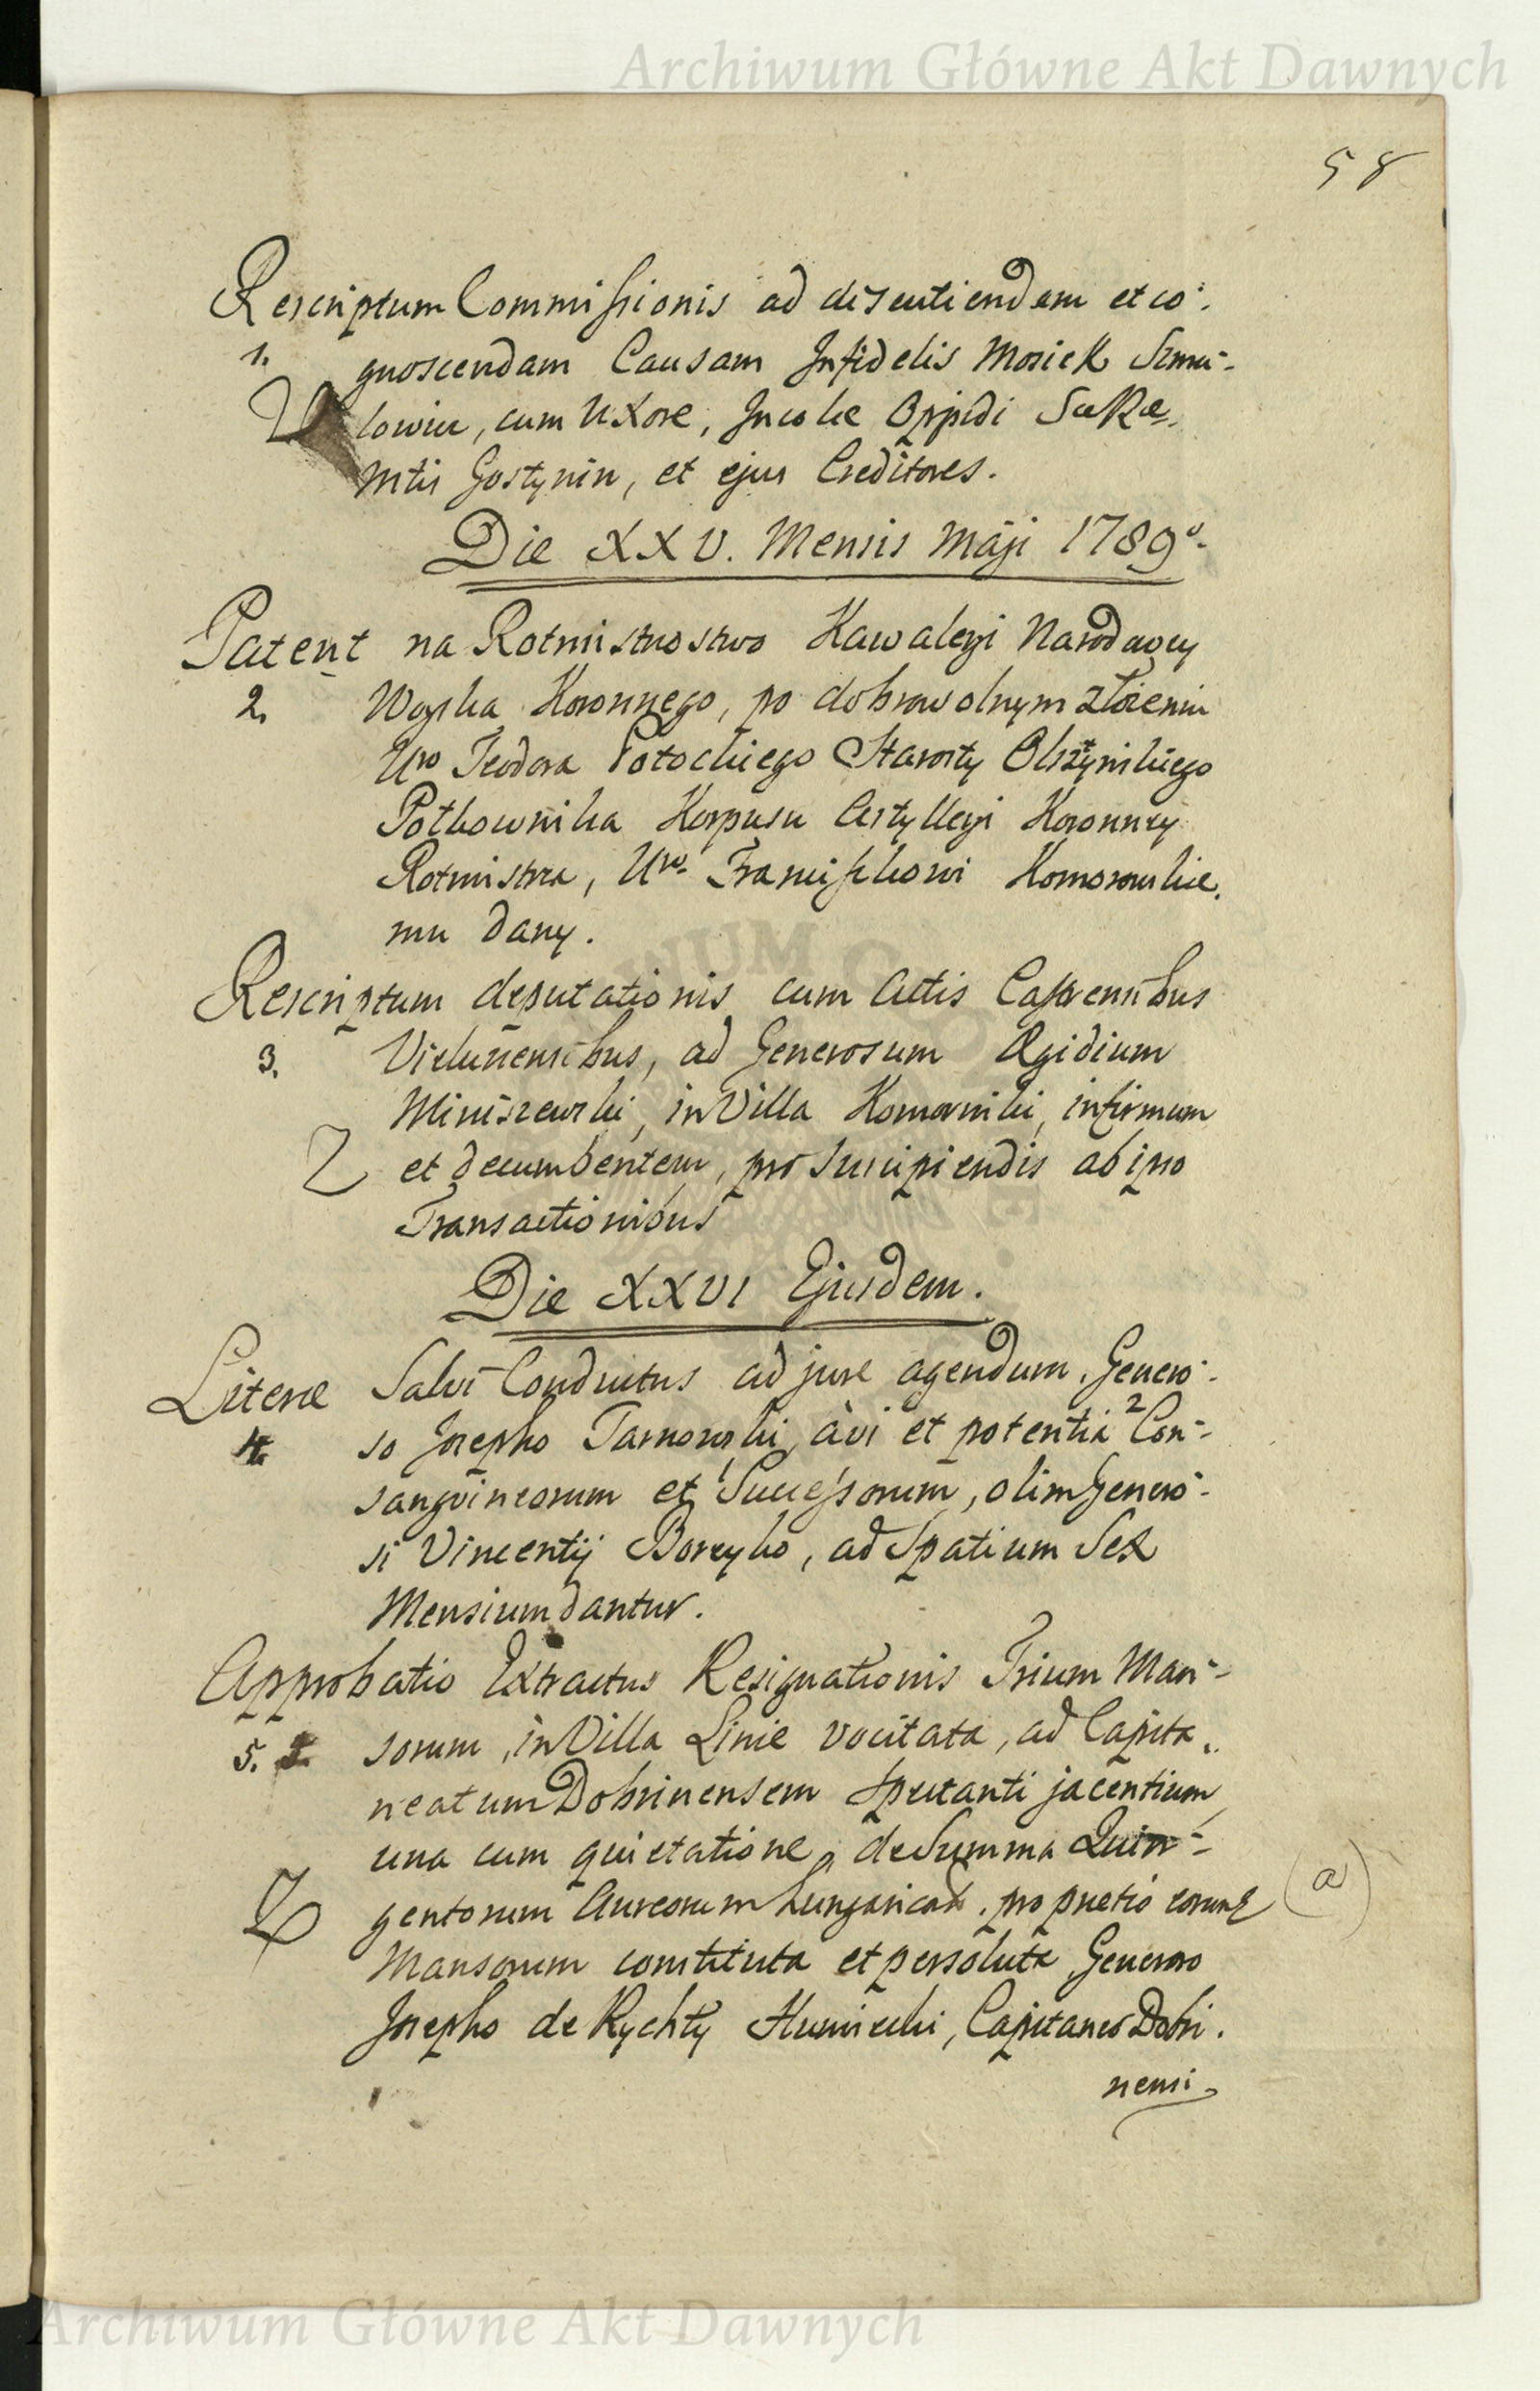 Archiwum Główne Akt Dawnych
58
Rescriptum Commissionis ad discutiendam et co-
1. gnoscendam Causam Infidelis Mosiek Szmu-
lowicz, cum Uxore, Incolæ Oppidi SacRæ
Mtis Gostynin, et ejus Creditores.
Die XXV. Mensis Maji 1789º
Patent na Rotmistrzostwo Kawaleryi Narodowey
2. Woyska Koronnego, po dobrowolnym złożeniu
Uro Teodora Potockiego Starosty Olsztyńskiego
Połkownika Korpusu Artylleryi Koronney
Rotmistrza, Uro Franciszkowi Komorowskie-
mu dany.
Rescriptum deputationis cum Actis Castrensibus
3. Vielunensibus, ad Generosum Ægidium
Miniszewski, in Villa Komorniki, infirmum
et decumbentem, pro suscipiendis ab ipso
Transactionibus
Die XXVI Ejusdem.
Literæ Salvi Conductus ad jure agendum, Genero-
4. so Josepho Tarnowski, avi et potentia 2 Con-
sanguineorum et Successorum, olim Genero-
si Vincentij Boreyko, ad Spatium Sex
Mensium dantur.
Approbatio Extractus Resignationis Trium Man-
5. sorum, in Villa Linie vocitata, ad Capita-
neatum Dobrinensem spectanti jacentium
una cum quietatione, de Summa Quin-
gentorum Aureorum hungarical. pro pretio eorund (a)
Mansorum constituta et persoluta Generoso
Josepho de Rychty Humiecki, Capitaneo Dobri-
nensi
Archiwum Główne Akt Dawnych